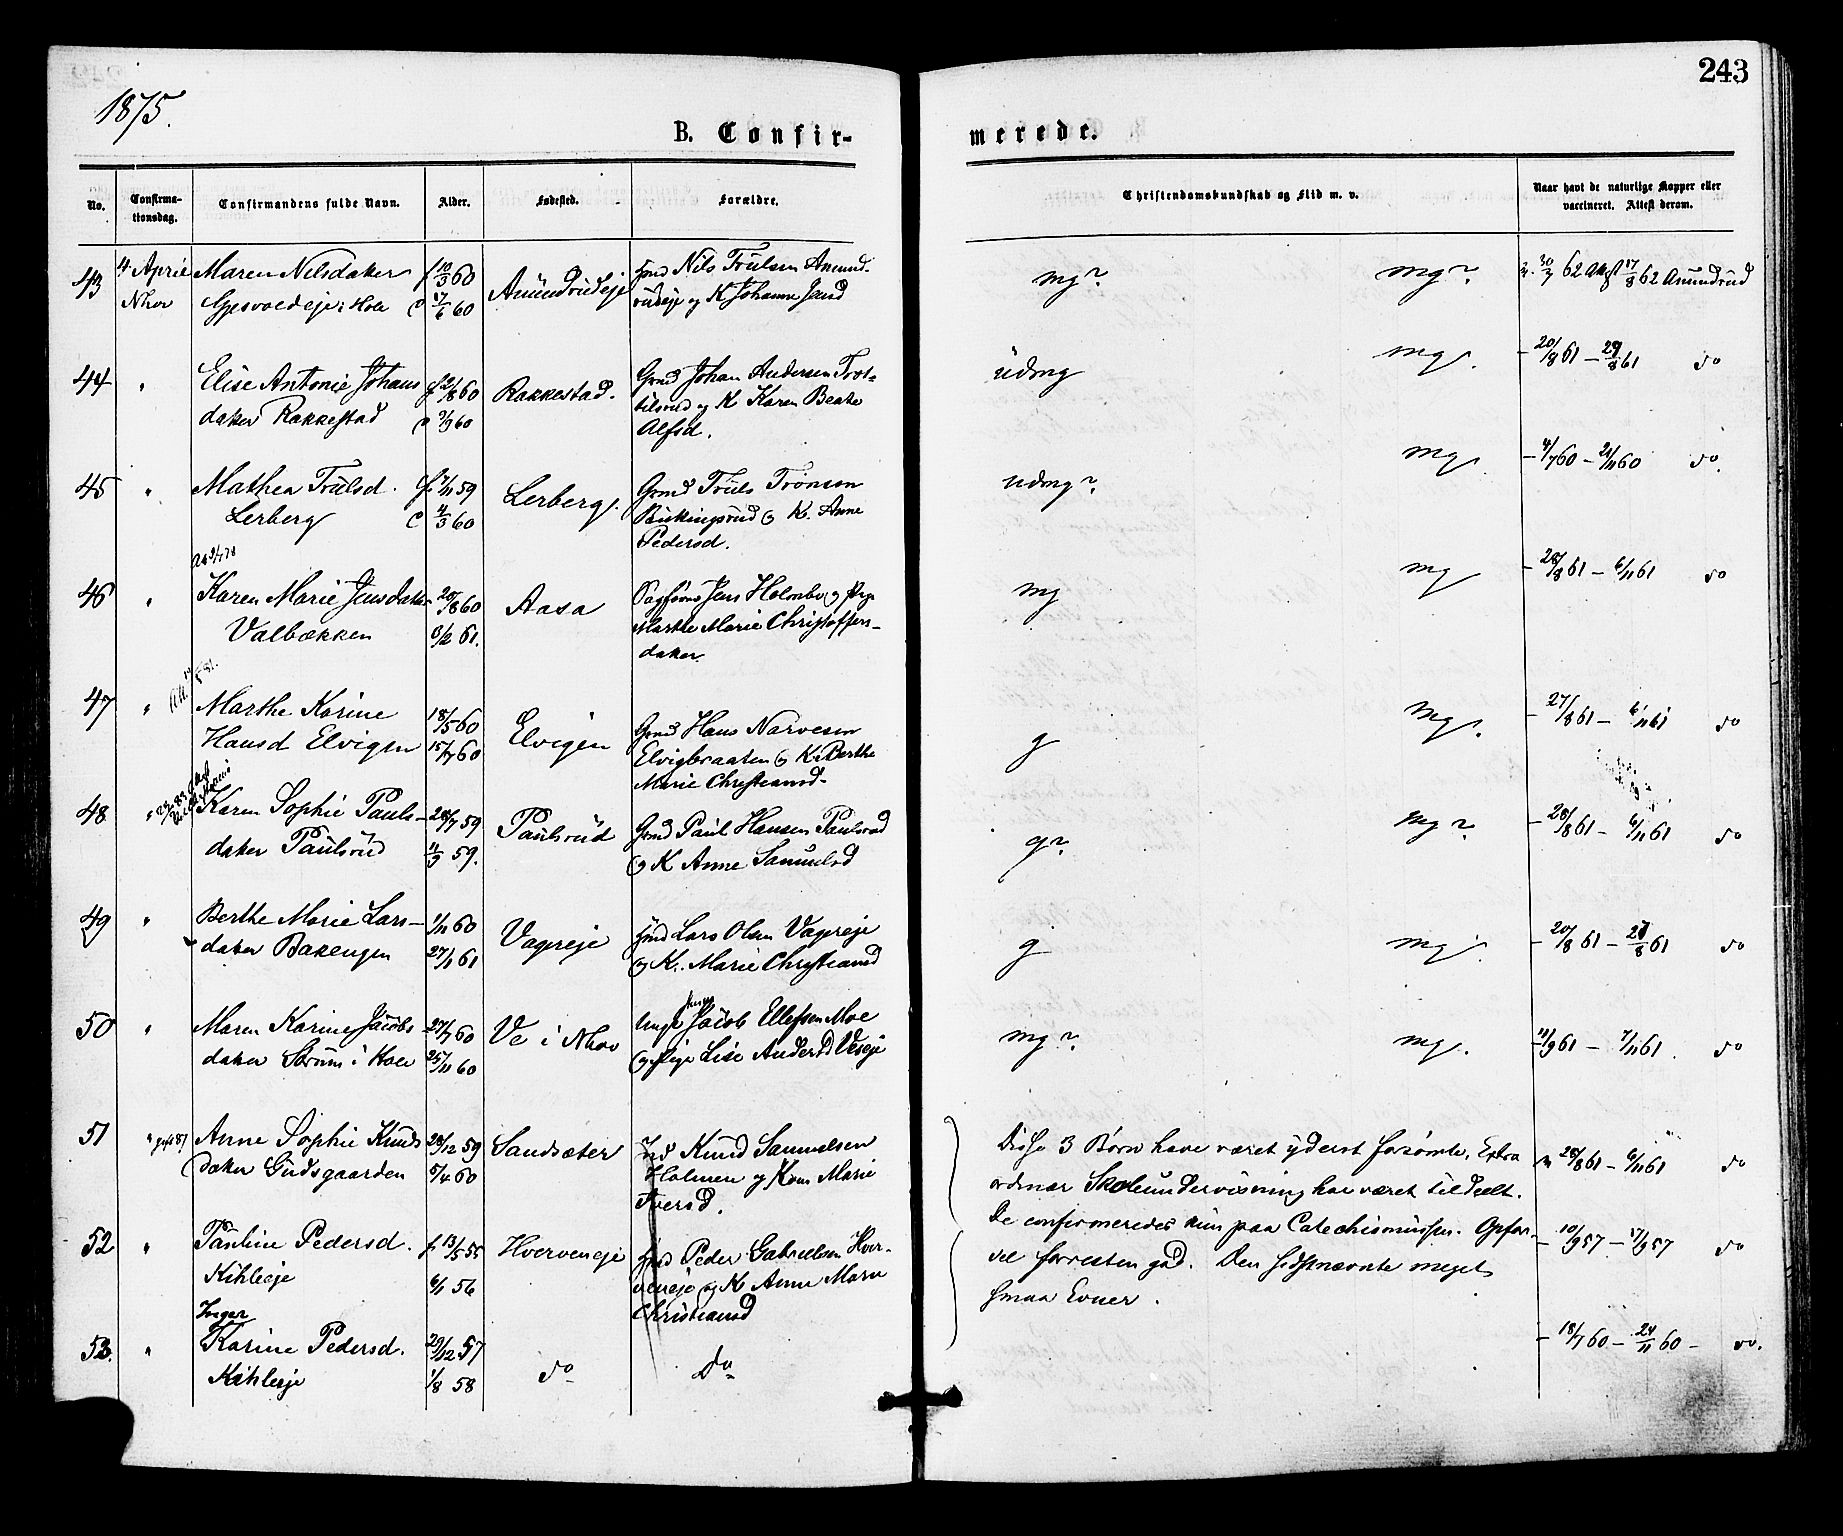 243
1875.
B. Confir-
merede.
No.
Confirma-
tionsdag.
Confirmandens fulde Navn.
Alder.
Fødested.
Forældre.
Christendomskundskab og Flid m. v.
Naar havt de naturlige Kopper eller
vaccineret. Attest derom.
43 4 April Maren Nilsdater f 10/3 60 Amundrudeje Nils Trulsen Amund-
Nhov i Hole d 17/6 60 rudeje og K Johanne Jansd
mg? mg? 62 17/8 62 Amundrud
44 " Elise Antonie Johans f 2/8 60 Rakkestad. Grmd Johan Andersen
dater Rakkestad d 9/9 60 og K Karen Beate
Alfsd.
udmg mg. - 20/8 61 - 61 do
45 " Mathea Trulsd. f 7/11 59 Lerberg. Grmd Truls Trønsen
Lerberg d 4/3 60 og K. Anne
Pedersd.
udmg? mg - 4/7 60 - 21/11 60 do
46 " Karen Marie Jensdater 20/8 60 Aasa Jens Holmbo og
Valbækken 8/12 61. Marthe Marie Christoffers-
dater.
mg mg - 28/8 61 - 6/11 61 do
47 " Marthe Karine 18/5 60 Elvigen Grmd Hans Narvesen
Hansd Elvigen 15/7 60 Elvigbraaten og K. Berthe
Marie Christiansd.
g mg. - 27/8 61 - 6/11 61 do
48 " Karen Sophie Pauls- 28/7 59 Paulsrud Grmd Paul Hansen Paulsrud
dater Paulsrud 11/9 59. og K Anne Samuelsd
g? mg? - 28/8 61 - 6/11 61 do
49 " Berthe Marie Lars- 1/11 60 Vagereje Lars Olsen Vagereje
dater Bakengen 27/1 61 og K. Marie Christiansd
g mg. - 20/8 61 - 61 do
50 " Maren Karine Jacobs 27/7 60 Ve i Nhov Ungk Jacob Ellefsen Moe
dater Strøm i Hole 25/11 60 og Pige Lise Andersd Veseje
mg? mg. 11/9 61 - 7/11 61. do
51 " Anne Sophie Knuds 28/12 59 Sandsæter Knud Samuelsen
dater Gudsgaarden 5/4 60 Holmen og Kone Marie
Iversd.
Disse 3 Børn have været yderst forsømte. Extra
28/8 61 - 6/11 61 do
ordinær Skoleundervisning har været tildeelt.
De confirmeredes kun paa Catechismussen. Opfør-
52 " Pauline Pedersd. f 13/5 55 Hverveneje Peder Gabrielsen Hver-
Kihleeje 6/1 56 veneje og K Anne Marie
Christiansd
- 10/9 57 - 17/9 57 do
sel forresten god. Den sidstnævnte meget
smaa Evner.
Inger
53. " Karine Pedersd. 29/12 57 do Do
Kihleeje 1/8 58
- 18/7 60 - 24/11 60 - do.